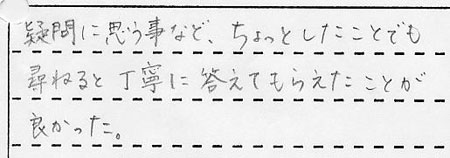 疑問に思う事など、ちょっとしたことでも
尋ねると丁寧に答えてもらえたことが
良かった。